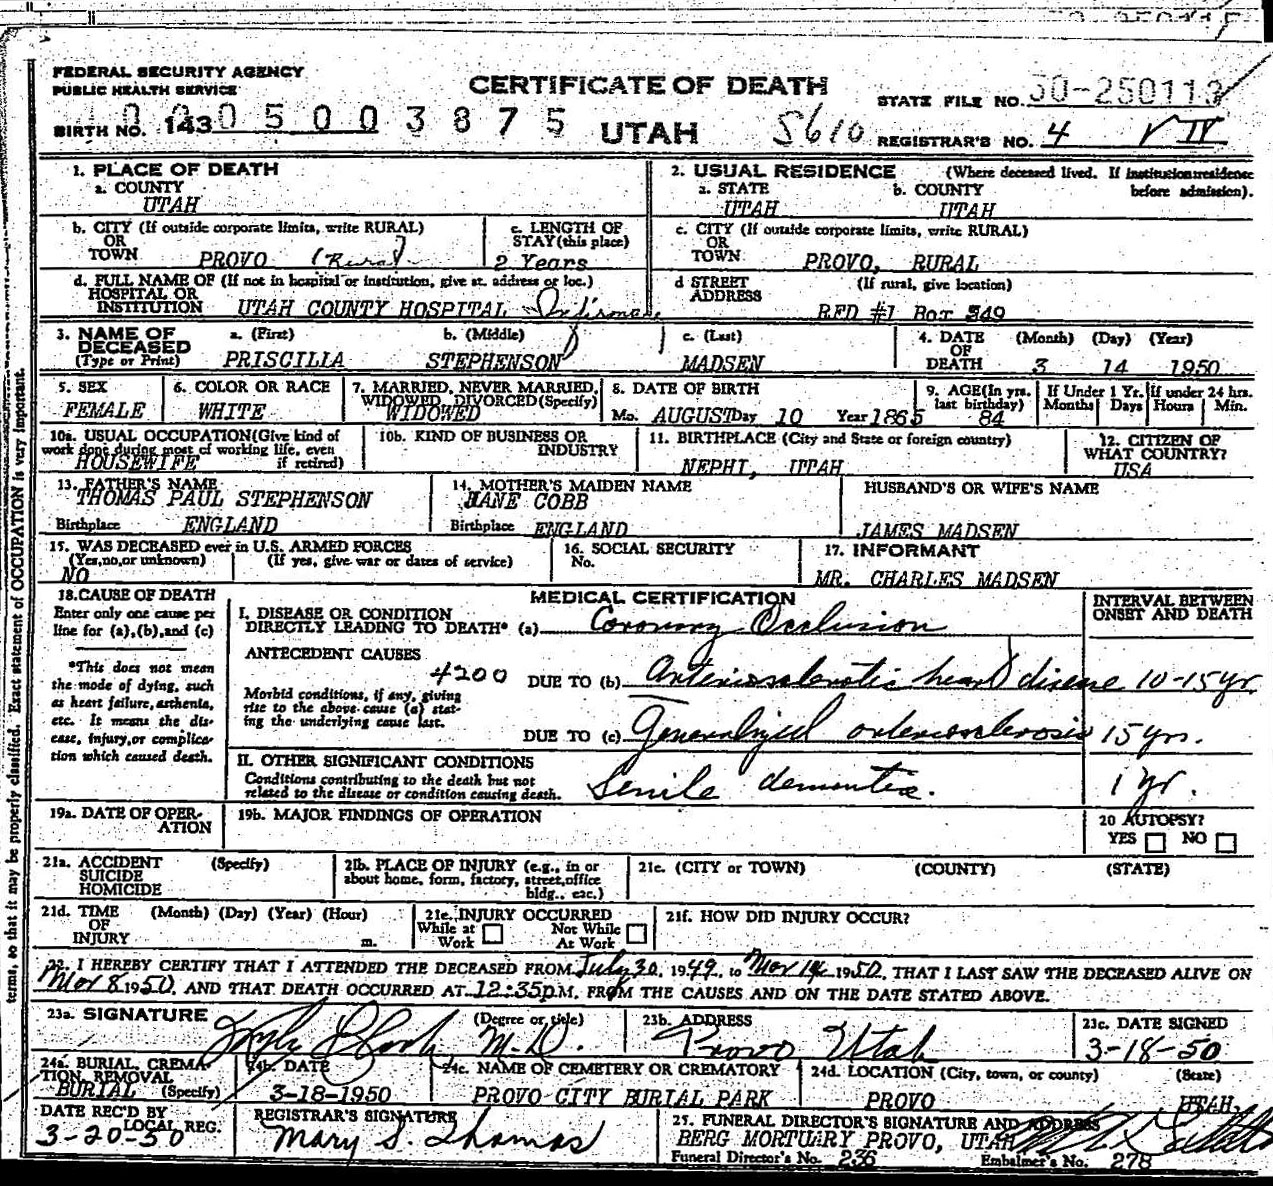 FEDERAL SECURITY AGENCY
PUBLIC HEALTH SERVICE
CERTIFICATE OF DEATH
STATE FILE NO. 50-250113
BIRTH NO. 143 0005003875
UTAH
5610
REGISTRAR'S NO. 4
1. PLACE OF DEATH
a. COUNTY
UTAH
2. USUAL RESIDENCE (Where deceased lived. If institution: residence before admission).
a. STATE b. COUNTY
UTAH UTAH
b. CITY (If outside corporate limits, write RURAL)
OR
TOWN PROVO (Rural)
c. LENGTH OF
STAY (this place)
2 Years
c. CITY (If outside corporate limits, write RURAL)
OR
TOWN PROVO, RURAL
d. FULL NAME OF (If not in hospital or institution, give st. address or loc.)
HOSPITAL OR
INSTITUTION UTAH COUNTY HOSPITAL Infirmary
d STREET (If rural, give location)
ADDRESS RFD #1 Box 349
3. NAME OF DECEASED
(Type or Print)
a. (First) b. (Middle) c. (Last)
PRISCILLA STEPHENSON MADSEN
4. DATE OF DEATH (Month) (Day) (Year)
3 14 1950
5. SEX
FEMALE
6. COLOR OR RACE
WHITE
7. MARRIED, NEVER MARRIED,
WIDOWED, DIVORCED (Specify)
WIDOWED
8. DATE OF BIRTH
Mo. AUGUST Day 10 Year 1865
9. AGE (In yrs. last birthday)
84
If Under 1 Yr. If under 24 hrs.
Months Days Hours Min.
10a. USUAL OCCUPATION (Give kind of
work done during most of working life, even
if retired)
HOUSEWIFE
10b. KIND OF BUSINESS OR
INDUSTRY
11. BIRTHPLACE (City and State or foreign country)
NEPHI, UTAH
12. CITIZEN OF
WHAT COUNTRY?
USA
13. FATHER'S NAME
THOMAS PAUL STEPHENSON
Birthplace ENGLAND
14. MOTHER'S MAIDEN NAME
JANE COBB
Birthplace ENGLAND
HUSBAND'S OR WIFE'S NAME
JAMES MADSEN
15. WAS DECEASED ever in U.S. ARMED FORCES
(Yes, no, or unknown) (If yes, give war or dates of service)
NO
16. SOCIAL SECURITY
No.
17. INFORMANT
MR. CHARLES MADSEN
18. CAUSE OF DEATH
Enter only one cause per
line for (a), (b), and (c)
*This does not mean
the mode of dying, such
as heart failure, asthenia,
etc. It means the dis-
ease, injury, or complica-
tion which caused death.
MEDICAL CERTIFICATION
INTERVAL BETWEEN
ONSET AND DEATH
I. DISEASE OR CONDITION
DIRECTLY LEADING TO DEATH* (a) Coronary Occlusion
ANTECEDENT CAUSES
4200
Morbid conditions, if any, giving
rise to the above cause (a) stat-
ing the underlying cause last.
DUE TO (b) Arteriosclerotic heart disease 10-15 yr.
DUE TO (c) Generalized arteriosclerosis 15 yrs.
II. OTHER SIGNIFICANT CONDITIONS
Conditions contributing to the death but not
related to the disease or condition causing death.
Senile dementia. 1 yr.
19a. DATE OF OPER-
ATION
19b. MAJOR FINDINGS OF OPERATION
20 AUTOPSY?
YES NO
21a. ACCIDENT (Specify)
SUICIDE
HOMICIDE
21b. PLACE OF INJURY (e.g., in or
about home, form, factory, street, office
bldg., exc.)
21c. (CITY or TOWN) (COUNTY) (STATE)
21d. TIME (Month) (Day) (Year) (Hour)
OF
INJURY m.
21e. INJURY OCCURRED
While at Work Not While At Work
21f. HOW DID INJURY OCCUR?
22. I HEREBY CERTIFY THAT I ATTENDED THE DECEASED FROM July 30, 1949, to Mar 14, 1950, THAT I LAST SAW THE DECEASED ALIVE ON
Mar 8 1950, AND THAT DEATH OCCURRED AT 12:35p M. FROM THE CAUSES AND ON THE DATE STATED ABOVE.
23a. SIGNATURE (Degree or title)
M.D.
23b. ADDRESS
Provo Utah
23c. DATE SIGNED
3-18-50
24a. BURIAL, CREMA-
TION, REMOVAL
BURIAL (Specify)
24b. DATE
3-18-1950
24c. NAME OF CEMETERY OR CREMATORY
PROVO CITY BURIAL PARK
24d. LOCATION (City, town, or county) (State)
PROVO UTAH
DATE REC'D BY
LOCAL REG.
3-20-50
REGISTRAR'S SIGNATURE
Mary S. Thomas
25. FUNERAL DIRECTOR'S SIGNATURE AND ADDRESS
BERG MORTUARY PROVO, UTAH
Funeral Director's No. 236 Embalmer's No. 278
terms, so that it may be properly classified. Exact statement of OCCUPATION is very important.